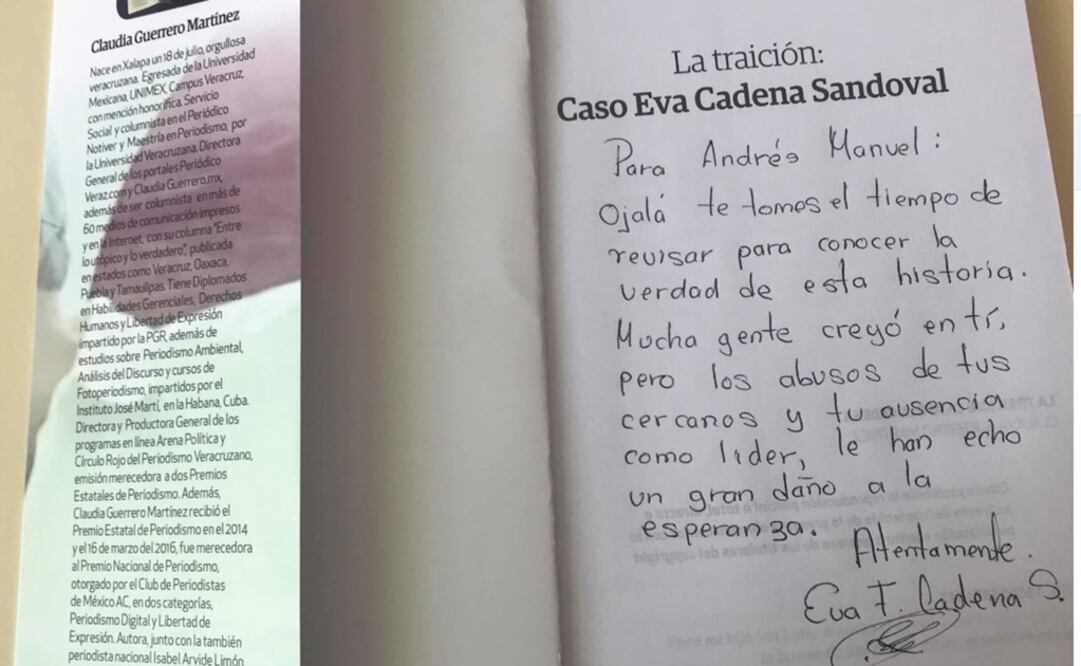 Claudia Guerrero Martínez
Nace en Xalapa un 18 de julio, orgullosa
veracruzana. Egresada de la Universidad
Mexicana, UNIMEX, Campus Veracruz,
con mención honorífica. Servicio
Social y columnista en el Periódico
Notiver y Maestría en Periodismo, por
la Universidad Veracruzana. Directora
General de los portales Periódico
Veraz.com y Claudia Guerrero.mx,
además de ser columnista en más de
60 medios de comunicación impresos
y en la Internet, con su columna "Entre
lo utópico y lo verdadero", publicada
en estados como Veracruz, Oaxaca,
Puebla y Tamaulipas. Tiene Diplomados
en Habilidades Gerenciales, Derechos
Humanos y Libertad de Expresión
impartido por la PGR, además de
estudios sobre Periodismo Ambiental,
Análisis del Discurso y cursos de
Fotoperiodismo, impartidos por el
Instituto José Martí, en la Habana, Cuba.
Directora y Productora General de los
programas en línea Arena Política y
Círculo Rojo del Periodismo Veracruzano,
emisión merecedora a dos Premios
Estatales de Periodismo. Además,
Claudia Guerrero Martínez recibió el
Premio Estatal de Periodismo en el 2014
y el 16 de marzo del 2016, fue merecedora
al Premio Nacional de Periodismo,
otorgado por el Club de Periodistas
de México AC, en dos categorías,
Periodismo Digital y Libertad de
Expresión. Autora, junto con la también
periodista nacional Isabel Arvide Limón
La traición:
Caso Eva Cadena Sandoval
Para Andrés Manuel:
Ojalá te tomes el tiempo de
revisar para conocer la
verdad de esta historia.
Mucha gente creyó en tí,
pero los abusos de tus
cercanos y tu ausencia
como lider, le han echo
un gran daño a la
esperanza.
Atentamente.
Eva T. Cadena S.